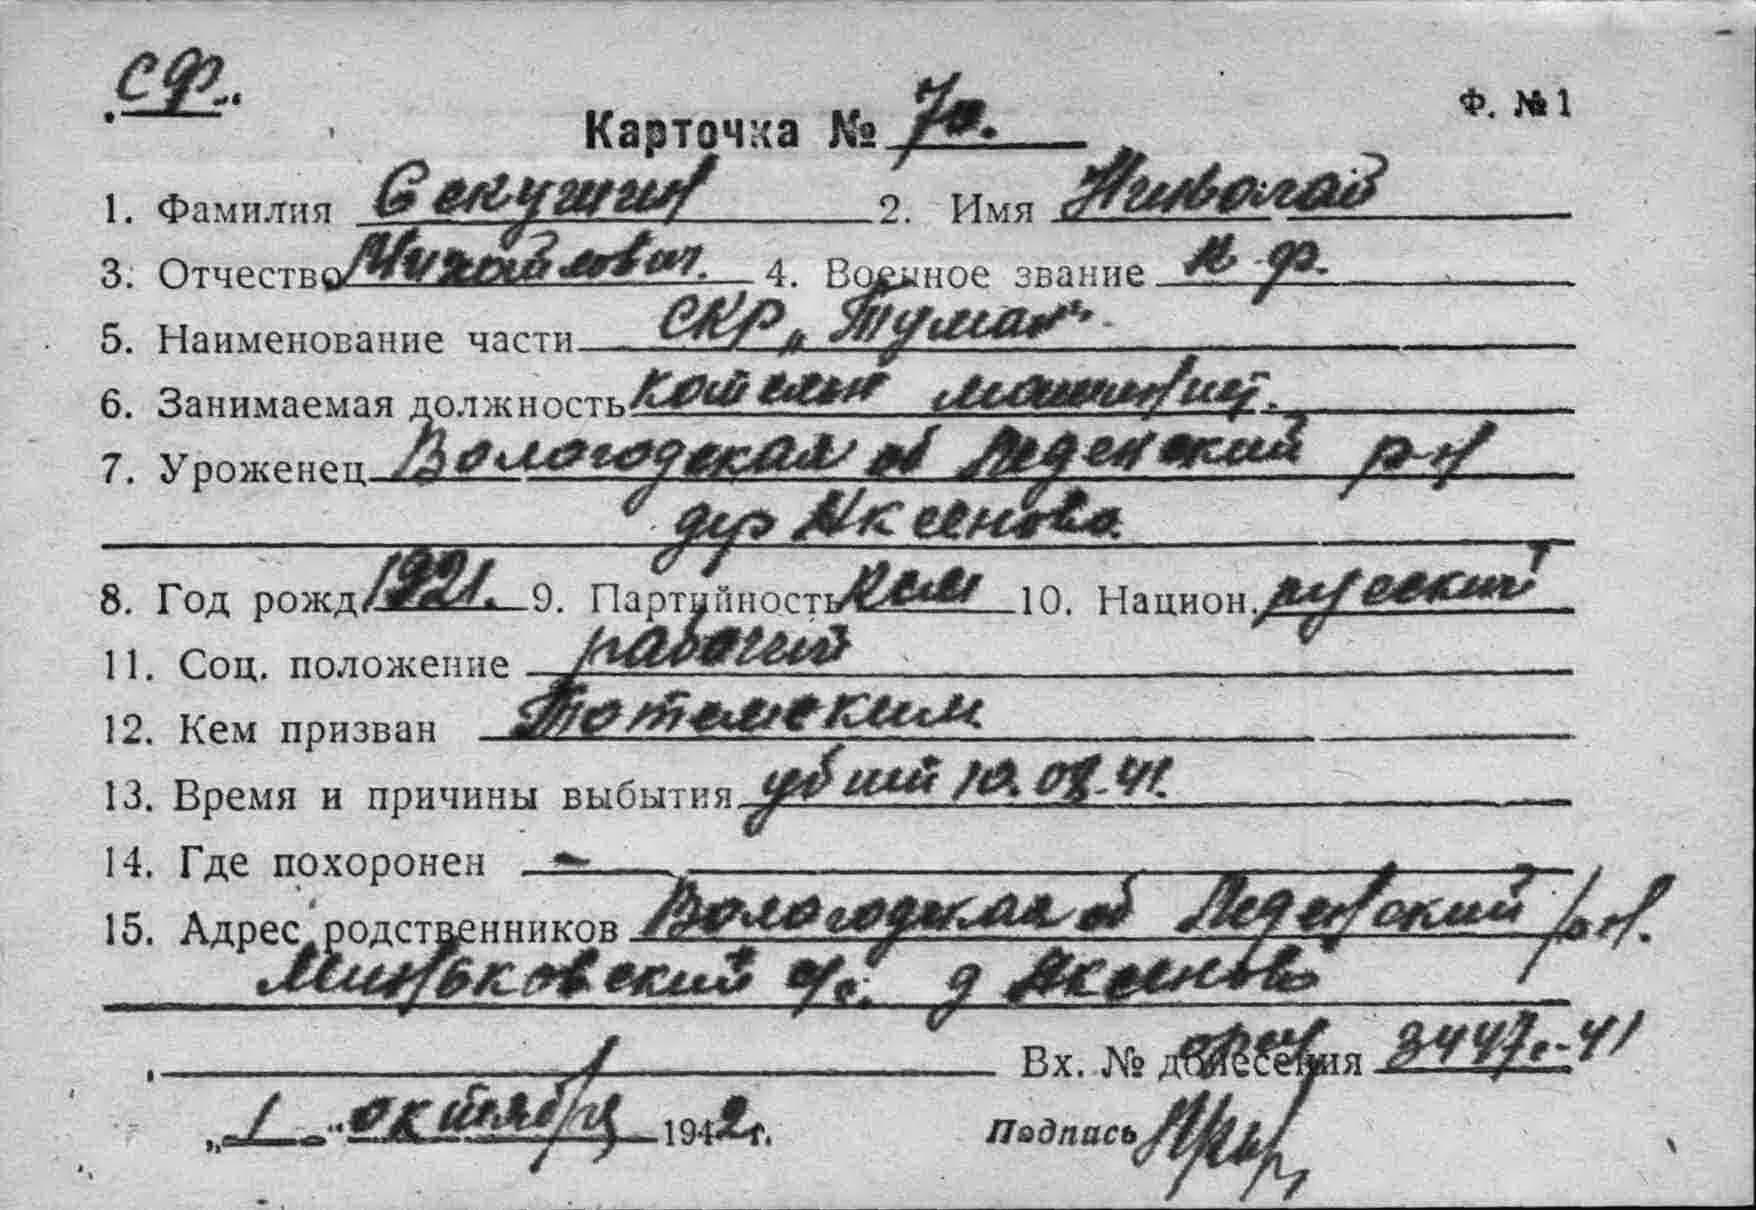 С Ф.
Ф. № 1
Карточка № 70.
1. Фамилия Секушин 2. Имя Николай
3. Отчество Михайлович. 4. Военное звание к-ф.
5. Наименование части СКР „Туман“.
6. Занимаемая должность котельн машинист.
7. Уроженец Вологодская об Леденский р-н
дер Аксеново.
8. Год рожд 1921. 9. Партийность ксм 10. Национ. русский
11. Соц. положение рабочий
12. Кем призван Тотемским
13. Время и причины выбытия убит 10.08.41.
14. Где похоронен —
15. Адрес родственников Вологодская об Леденский р-н.
Миньковский с/с. д Аксеново
Вх. № донесения 3447с-41
„1“ октября 1942 г. Подпись